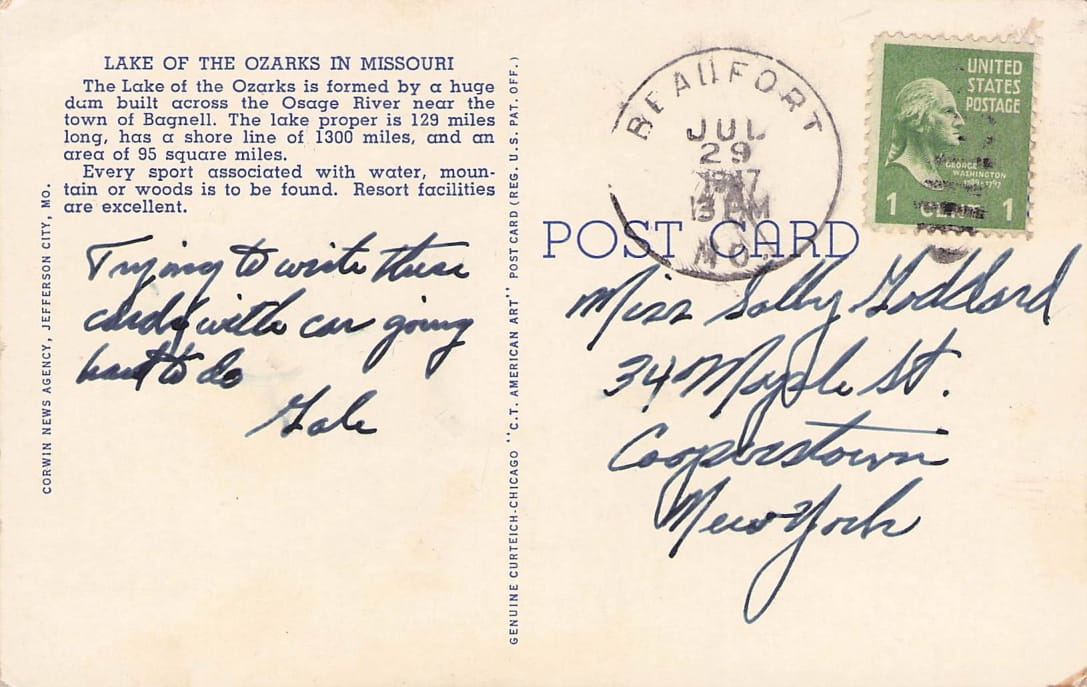 LAKE OF THE OZARKS IN MISSOURI
The Lake of the Ozarks is formed by a huge
dam built across the Osage River near the
town of Bagnell. The lake proper is 129 miles
long, has a shore line of 1300 miles, and an
area of 95 square miles.
Every sport associated with water, moun-
tain or woods is to be found. Resort facilities
are excellent.
Trying to write these
cards with car going
hard to do
Gale
CORWIN NEWS AGENCY, JEFFERSON CITY, MO.
GENUINE CURTEICH-CHICAGO "C.T. AMERICAN ART" POST CARD (REG. U.S. PAT. OFF.)
BEAUFORT
JUL
29
PM
MO.
UNITED
STATES
POSTAGE
GEORGE
WASHINGTON
1789-1797
1 1
POST CARD
Miss Sally Goddard
34 Maple St.
Cooperstown
New York